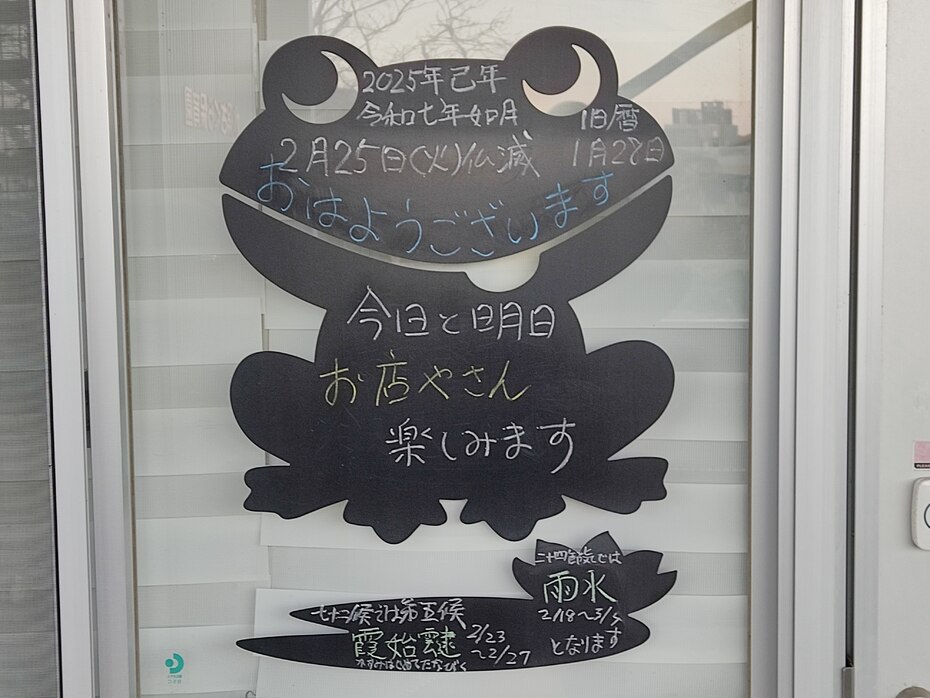 2025年己年
令和七年如月
旧暦
2月25日(火)仏滅
1月28日
おはようございます
今日と明日
お店やさん
楽しみます
二十四節気では
雨水
2/18~3/5
となります
七十二候では第五候
霞始靆
2/23
~2/27
かすみはじめてたなびく